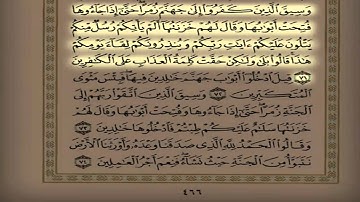 وَسِيقَ ٱلَّذِينَ كَفَرُوٓا۟ إِلَىٰ جَهَنَّمَ زُمَرًا حَتَّىٰٓ إِذَا جَآءُوهَا
فُتِحَتْ أَبْوَٰبُهَا وَقَالَ لَهُمْ خَزَنَتُهَآ أَلَمْ يَأْتِكُمْ رُسُلٌ مِّنكُمْ
يَتْلُونَ عَلَيْكُمْ ءَايَٰتِ رَبِّكُمْ وَيُنذِرُونَكُمْ لِقَآءَ يَوْمِكُمْ
هَٰذَا قَالُوا۟ بَلَىٰ وَلَٰكِنْ حَقَّتْ كَلِمَةُ ٱلْعَذَابِ عَلَى ٱلْكَٰفِرِينَ
٧١ قِيلَ ٱدْخُلُوٓا۟ أَبْوَٰبَ جَهَنَّمَ خَٰلِدِينَ فِيهَا فَبِئْسَ مَثْوَى
ٱلْمُتَكَبِّرِينَ ٧٢ وَسِيقَ ٱلَّذِينَ ٱتَّقَوْا۟ رَبَّهُمْ إِلَى
ٱلْجَنَّةِ زُمَرًا حَتَّىٰٓ إِذَا جَآءُوهَا وَفُتِحَتْ أَبْوَٰبُهَا وَقَالَ لَهُمْ
خَزَنَتُهَا سَلَٰمٌ عَلَيْكُمْ طِبْتُمْ فَٱدْخُلُوهَا خَٰلِدِينَ ٧٣
وَقَالُوا۟ ٱلْحَمْدُ لِلَّهِ ٱلَّذِى صَدَقَنَا وَعْدَهُۥ وَأَوْرَثَنَا ٱلْأَرْضَ
نَتَبَوَّأُ مِنَ ٱلْجَنَّةِ حَيْثُ نَشَآءُ فَنِعْمَ أَجْرُ ٱلْعَٰمِلِينَ ٧٤
٤٦٦